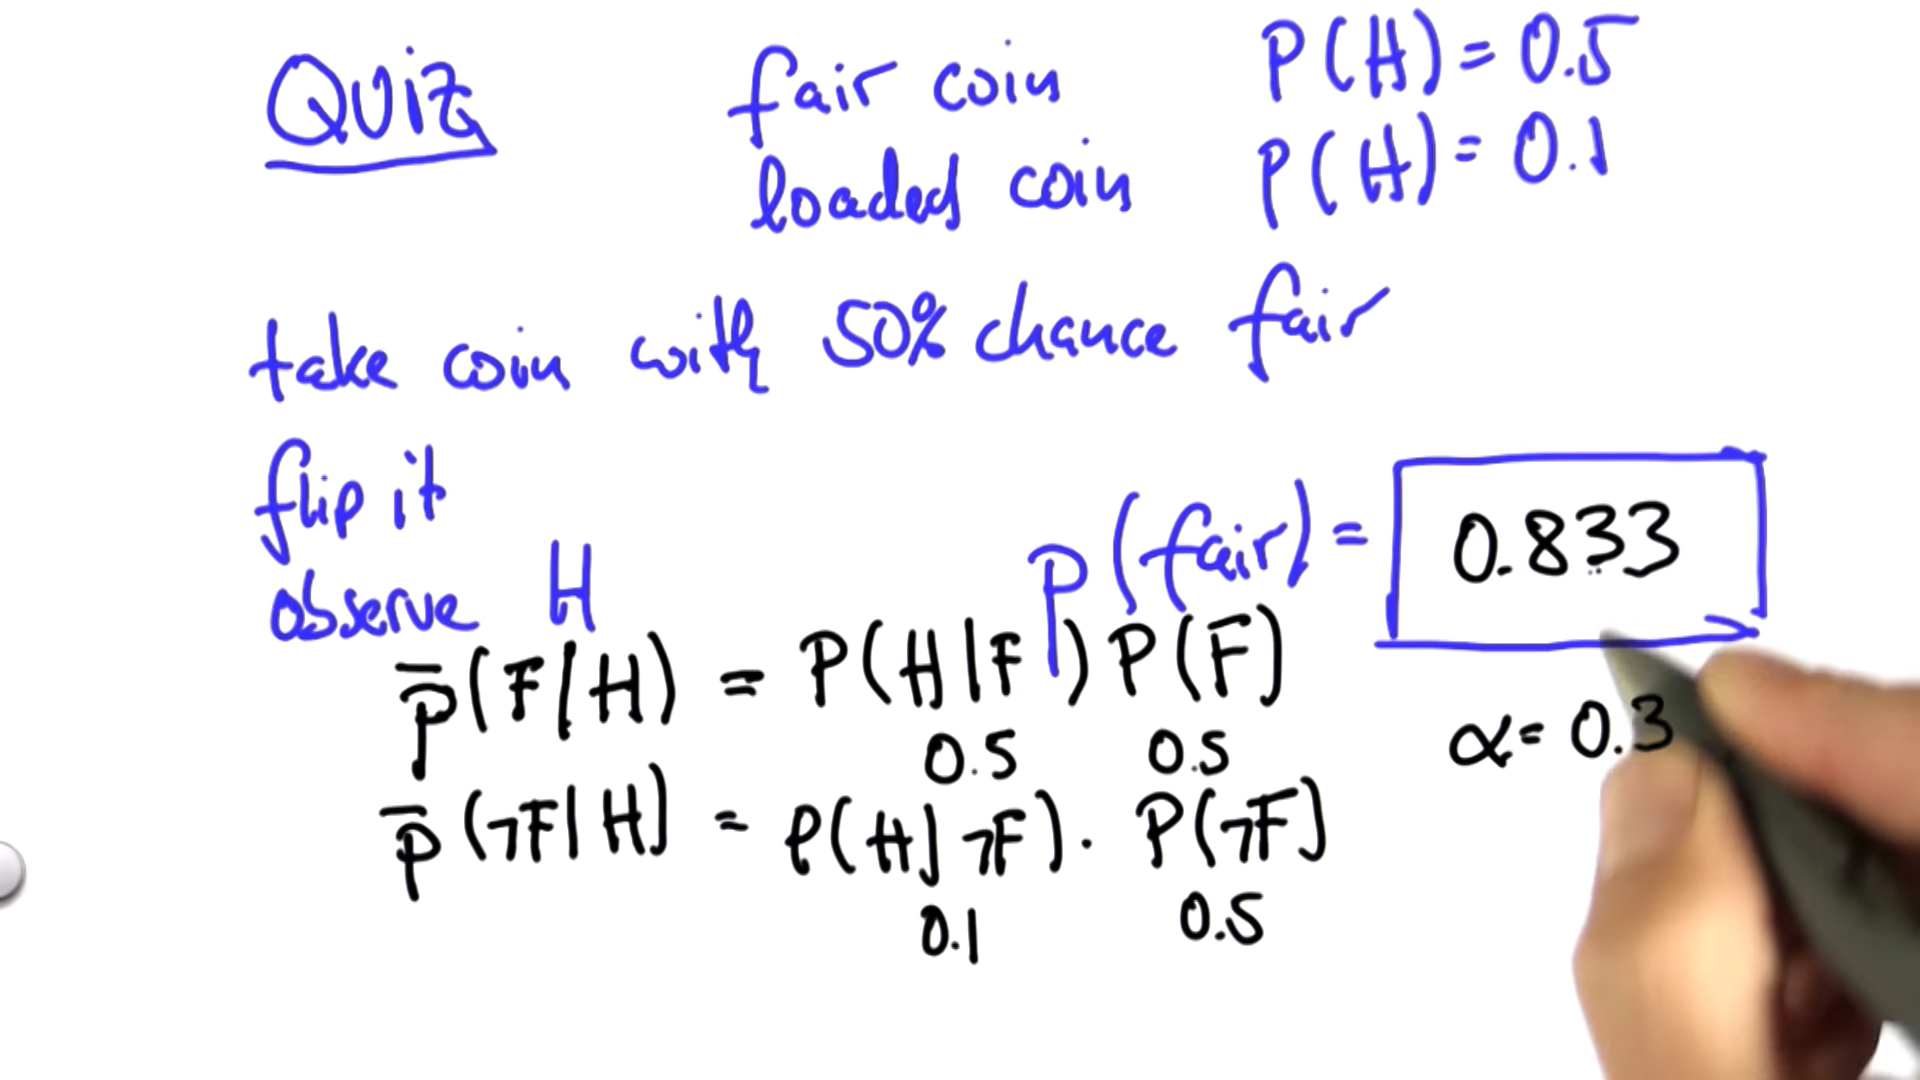 Quiz
fair coin P(H) = 0.5
loaded coin P(H) = 0.1
take coin with 50% chance fair
flip it
observe H
P(fair) = 0.833
p̅(F|H) = P(H|F) P(F)
0.5 0.5
α = 0.3
p̅(¬F|H) = P(H|¬F) · P(¬F)
0.1 0.5